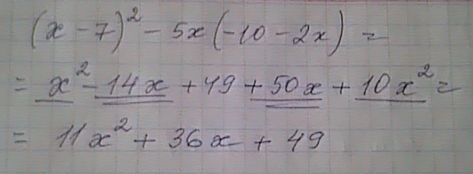 (x - 7)² - 5x (-10 - 2x) =
= x² - 14x + 49 + 50x + 10x² =
= 11x² + 36x + 49